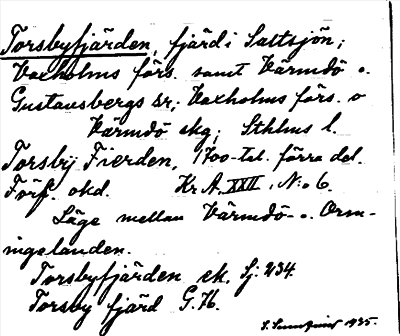 Torsbyfjärden, fjärd i Saltsjön;
Vaxholms förs. samt Värmdö o.
Gustavsbergs sr; Vaxholms förs. o
Värmdö skg; Sthlms l.
Torsby Fierden, 1700-tal. förra del.
Förf. okd. Kr. A. XXII, N:o 6.
Läge mellan Värmdö- o. Orm-
ingelanden.
Torsbyfjärden ek. Sj: 234.
Torsby fjärd G.K.
1935.